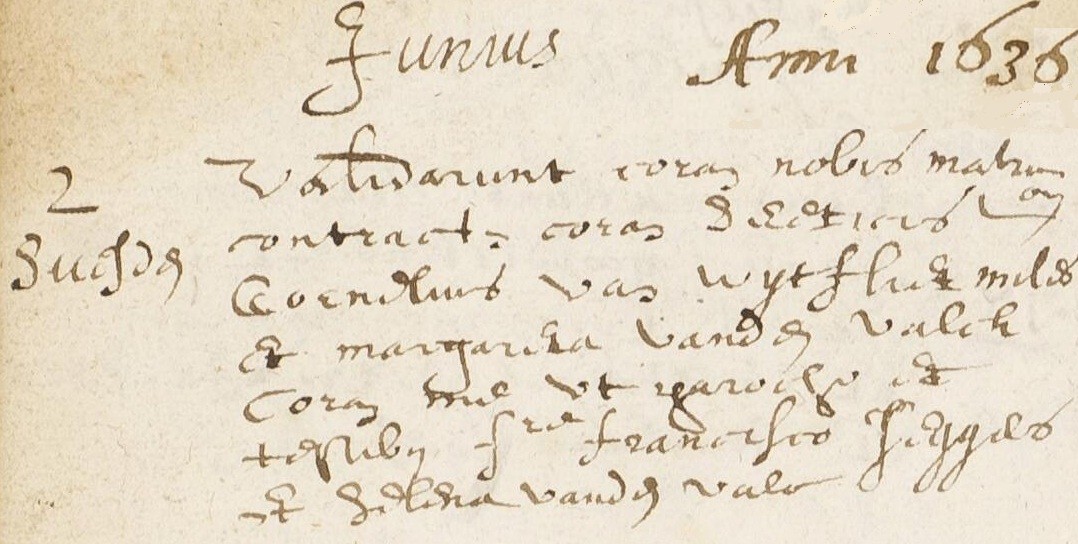 Junius Anni 1636
2 Validarunt coram nobis matrim
contract. coram hereticis
Cornelius van Wytfliet miles
Et margareta vanden Valck
Coram me ut parocho et
testibus fre francisco Seggers
Et Helena vanden valc